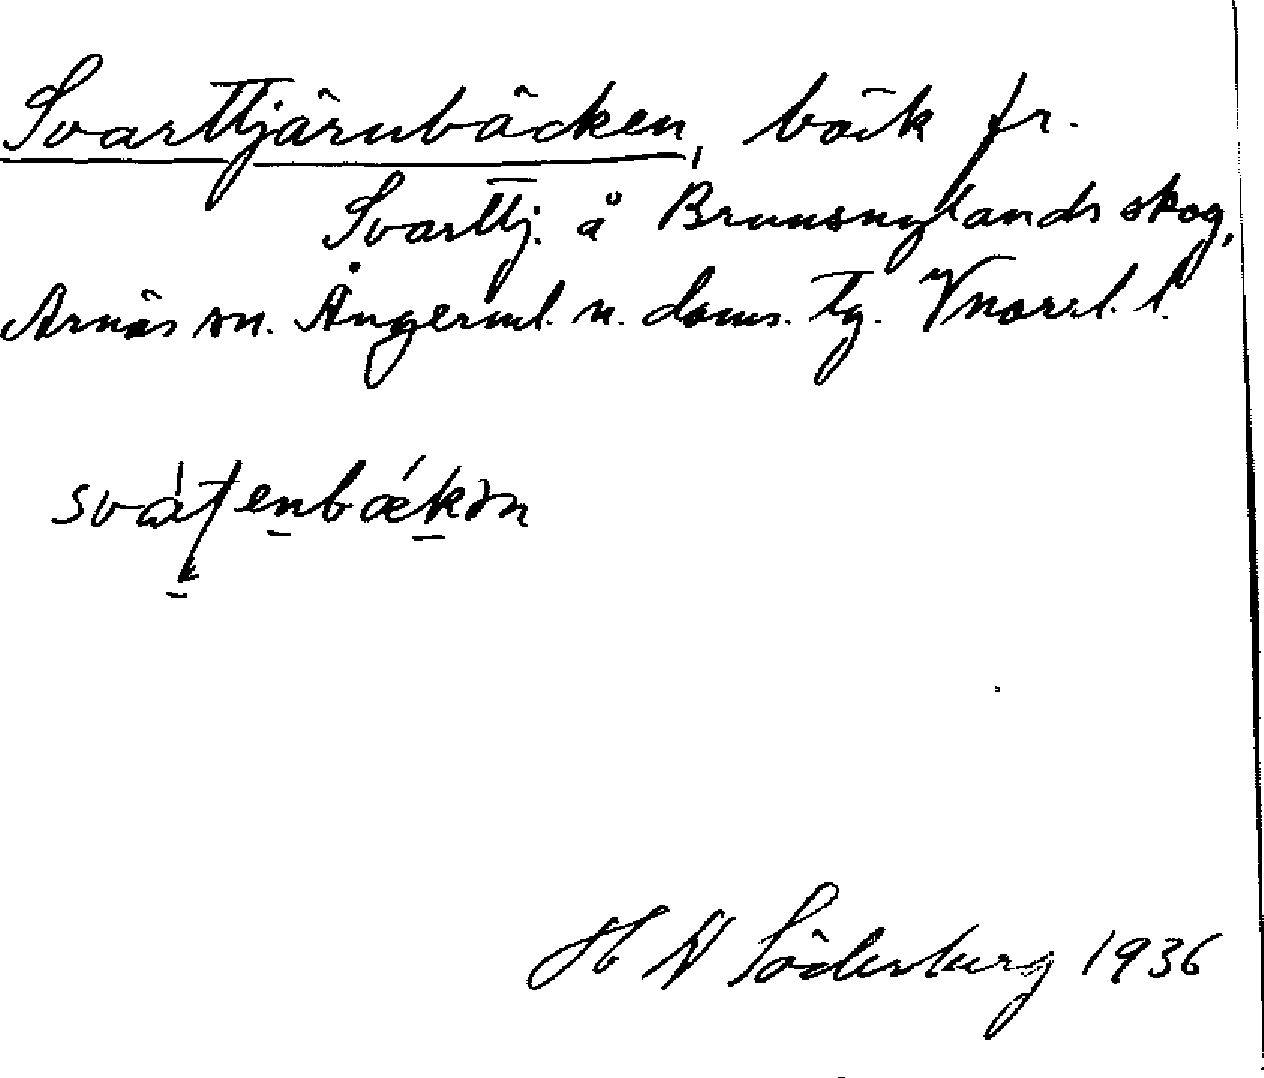 Svarttjärnbäcken, bäck fr.
Svarttj. å Brunsnylands skog,
Arnäs sn. Ångerml. n. doms. tg. Vnorrl. l.
H N Söderberg 1936